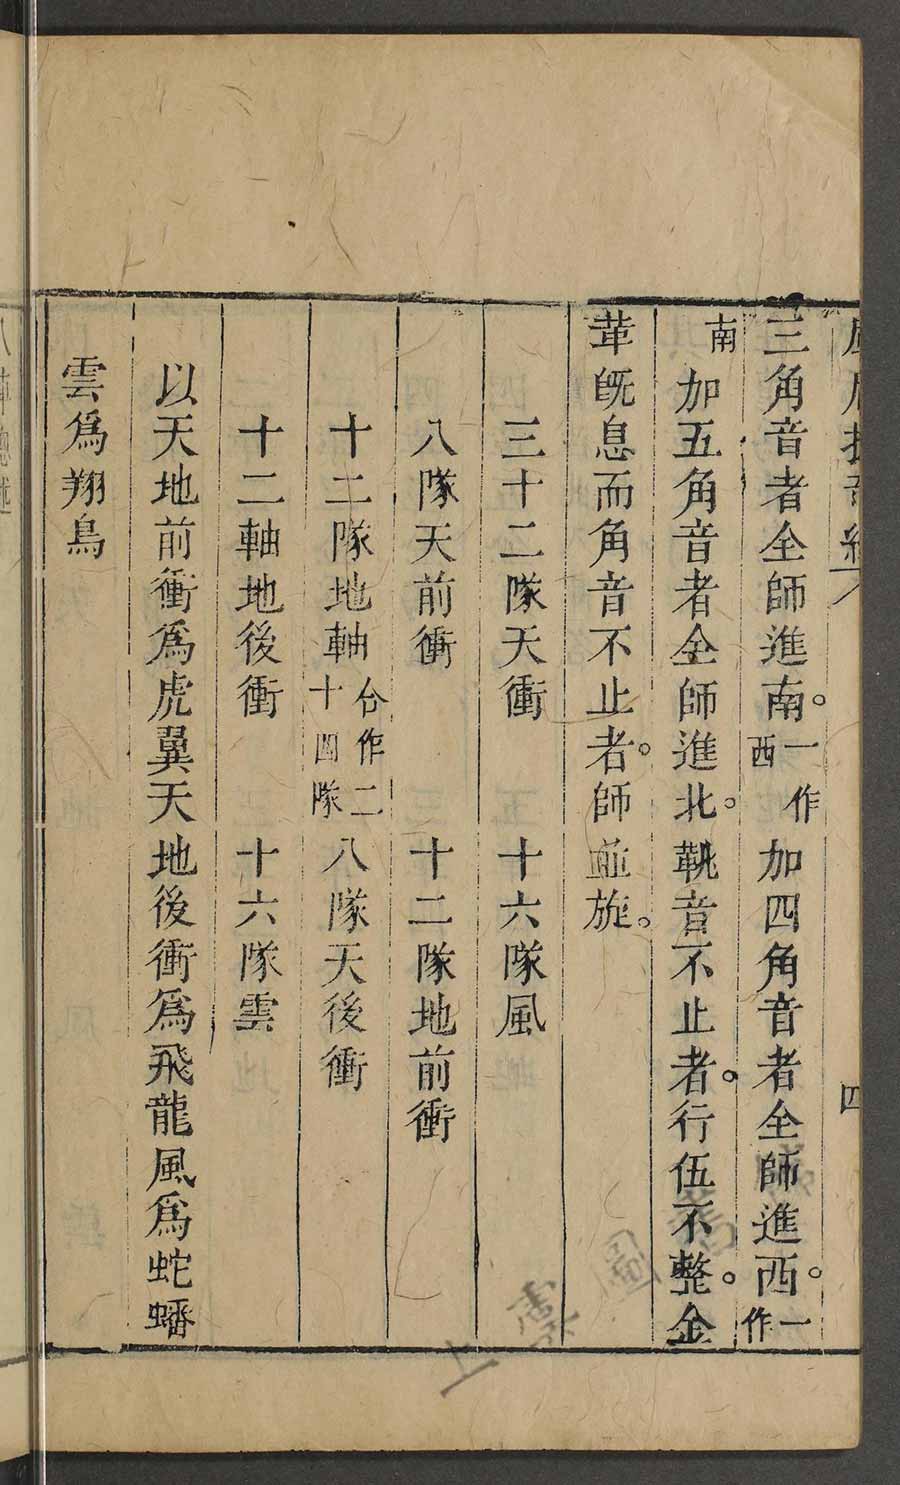 三角音者全師進南。一作西加四角音者全師進西。一作
南加五角音者全師進北。鞉音不止者。行伍不整。金
革旣息而角音不止者。師並旋。
三十二隊天衝　十六隊風
八隊天前衝　十二隊地前衝
十二隊地軸合作二十四隊八隊天後衝
十二軸地後衝　十六隊雲
以天地前衝爲虎翼天地後衝爲飛龍風爲蛇蟠
雲爲翔鳥
四